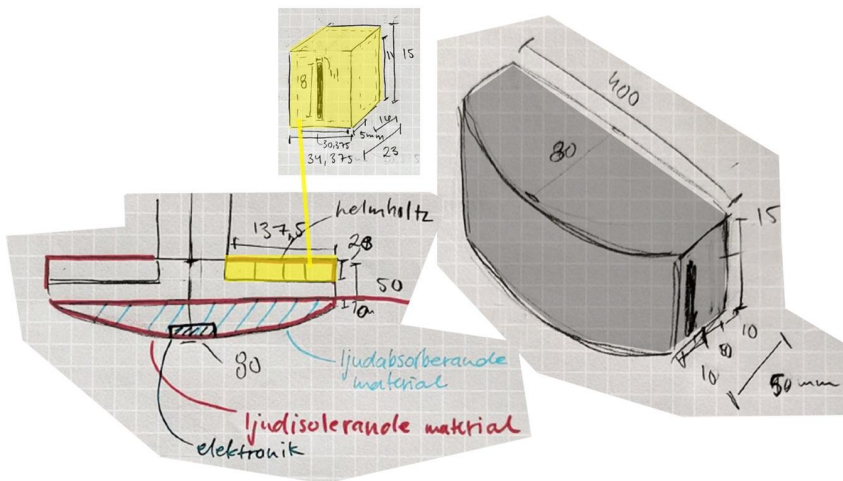 15
8
5mm
30,375
34,375
23
helmholtz
137,5
50
80
ljudabsorberande
material
ljudisolerande material
elektronik
400
80
15
10
10
50 mm